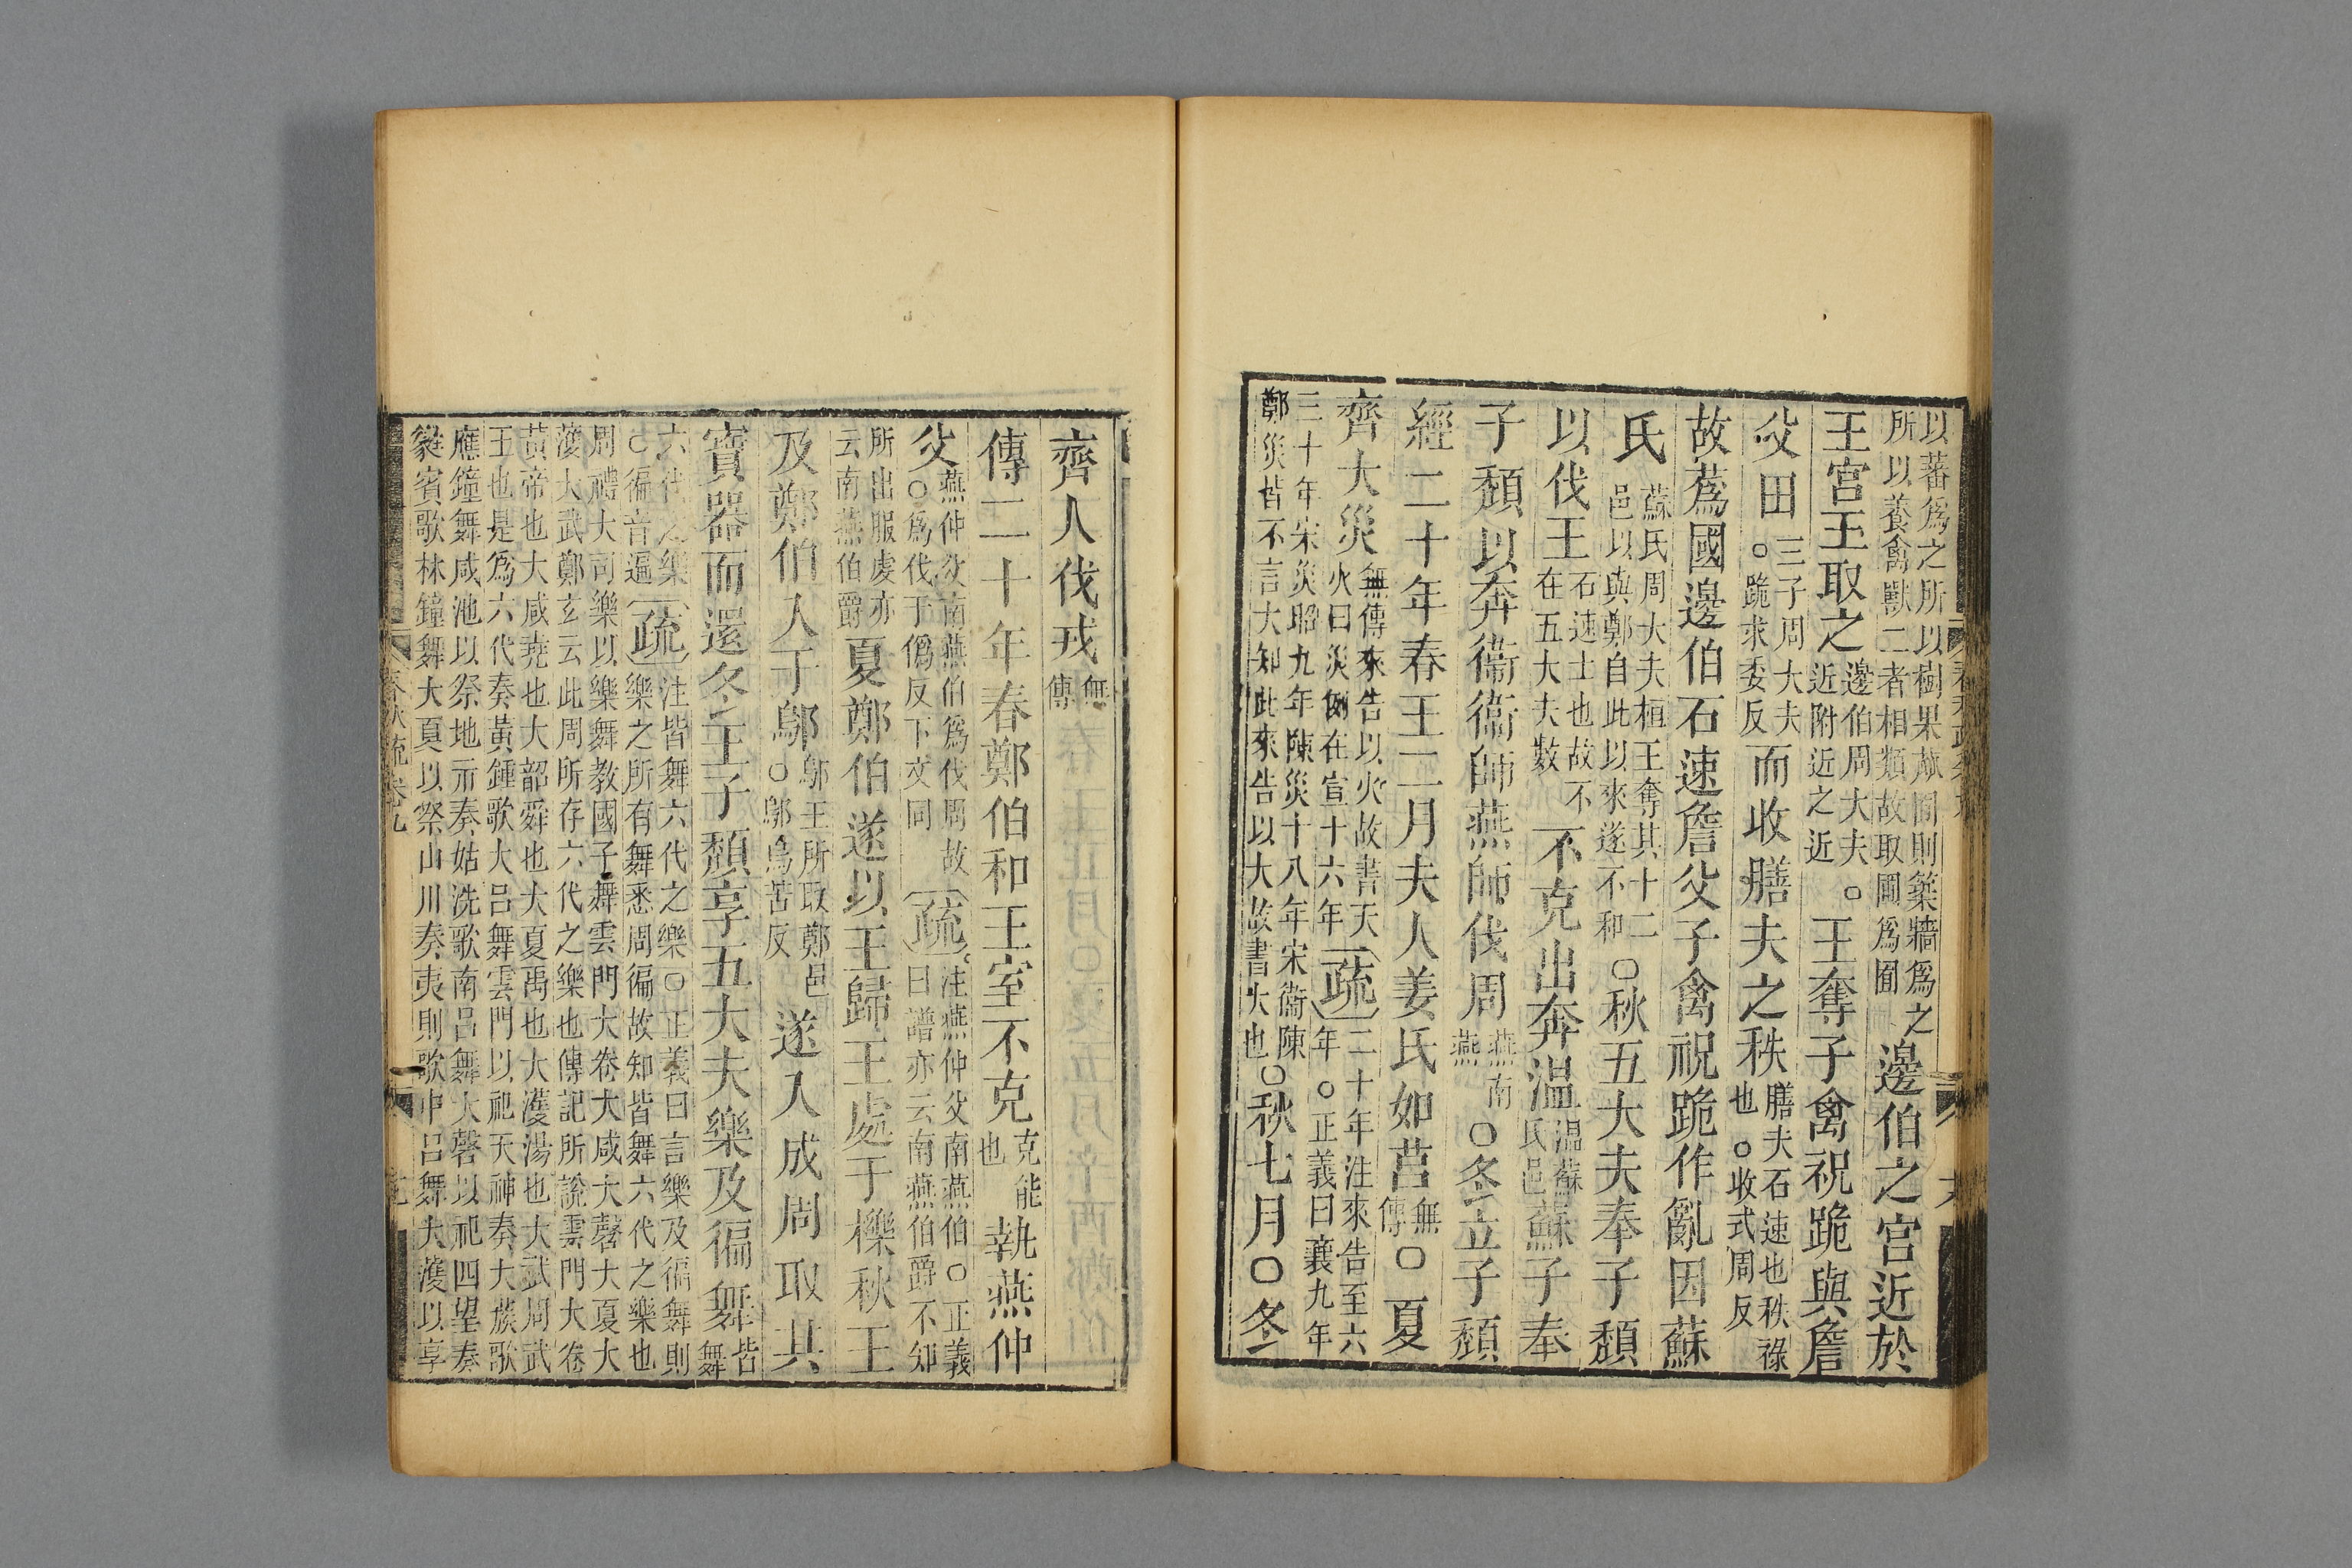 以蕃爲之所以樹果蓏囿則築牆爲之所以養禽獸二者相類故取圃爲囿邊伯之宫近於
王宫王取之邊伯周大夫○近附近之近王奪子禽祝跪與詹
父田三子周大夫○跪求委反而收膳夫之秩膳夫石速也秩祿也○收式周反
故蔿國邊伯石速詹父子禽祝跪作亂因蘇
氏蘇氏周大夫桓王奪其十二邑以與鄭自此以來遂不和○秋五大夫奉子頹
以伐王石速士也故不在五大夫數不克出奔温温蘇氏邑蘇子奉
子頹以奔衞衞師燕師伐周燕南燕○冬立子頹
經二十年春王二月夫人姜氏如莒無傳○夏
齊大災無傳來告以火故書天火曰災例在宣十六年疏二十年注來告至六年○正義曰襄九年
三十年宋災昭九年陳災十八年宋衞陳鄭災皆不言大知此來告以大故書大也○秋七月○冬
齊人伐戎無傳
傳二十年春鄭伯和王室不克克能也執燕仲
父燕仲父南燕伯爲伐周故○爲伐于僞反下文同疏注燕仲父南燕伯○正義曰譜亦云南燕伯爵不知
所出服虔亦云南燕伯爵夏鄭伯遂以王歸王處于櫟秋王
及鄭伯入于鄔鄔王所取鄭邑○鄔烏苦反遂入成周取其
寶器而還冬王子頹享五大夫樂及徧舞皆舞
六代之樂○徧音遍疏注皆舞六代之樂○正義曰言樂及徧舞則樂之所有舞悉周徧故知皆舞六代之樂也
周禮大司樂以樂舞教國子舞雲門大卷大咸大磬大夏大濩大武鄭玄云此周所存六代之樂也傳記所說雲門大卷
黃帝也大咸堯也大韶舜也大夏禹也大濩湯也大武周武王也是爲六代奏黃鍾歌大呂舞雲門以祀天神奏大蔟歌
應鐘舞咸池以祭地示奏姑洗歌南呂舞大磬以祀四望奏㽔賓歌林鐘舞大夏以祭山川奏夷則歌中呂舞大濩以享
春秋疏卷九